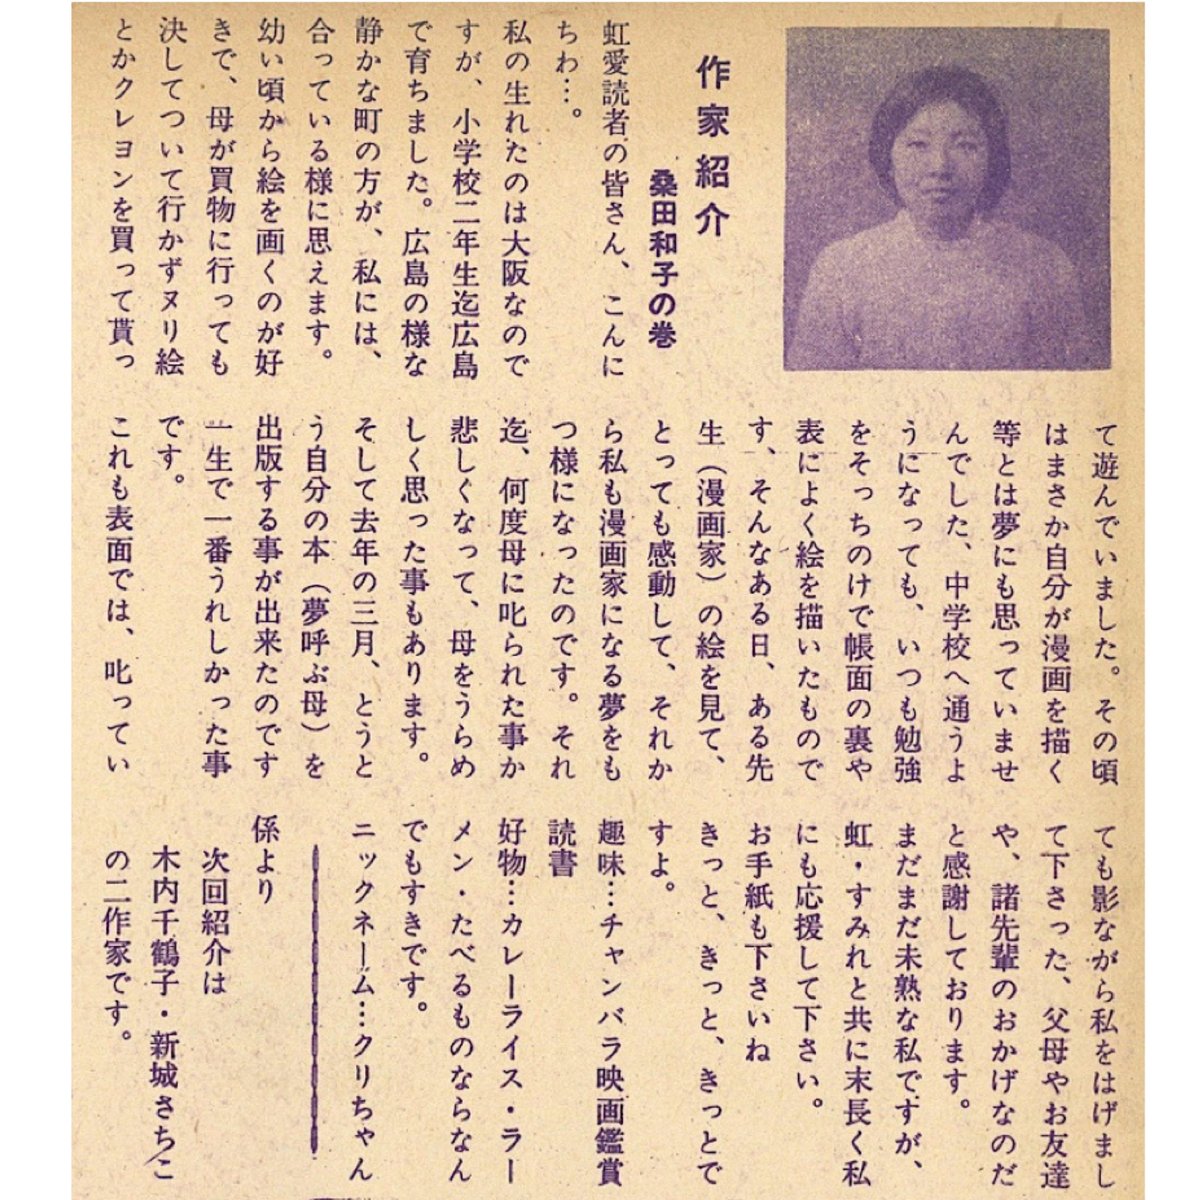 作家紹介
桑田和子の巻
虹愛読者の皆さん、こんに
ちわ…。
私の生れたのは大阪なので
すが、小学校二年生迄広島
で育ちました。広島の様な
静かな町の方が、私には、
合っている様に思えます。
幼い頃から絵を画くのが好
きで、母が買物に行っても
決してついて行かずヌリ絵
とかクレヨンを買って貰っ
て遊んでいました。その頃
はまさか自分が漫画を描く
等とは夢にも思っていませ
んでした、中学校へ通うよ
うになっても、いつも勉強
をそっちのけで帳面の裏や
表によく絵を描いたもので
す、そんなある日、ある先
生（漫画家）の絵を見て、
とっても感動して、それか
ら私も漫画家になる夢をも
つ様になったのです。それ
迄、何度母に叱られた事か
悲しくなって、母をうらめ
しく思った事もあります。
そして去年の三月、とうと
う自分の本（夢呼ぶ母）を
出版する事が出来たのです
一生で一番うれしかった事
です。
これも表面では、叱ってい
ても影ながら私をはげまし
て下さった、父母やお友達
や、諸先輩のおかげなのだ
と感謝しております。
まだまだ未熟な私ですが、
虹・すみれと共に末長く私
にも応援して下さい。
お手紙も下さいね
きっと、きっと、きっとで
すよ。
趣味…チャンバラ映画鑑賞
読書
好物…カレーライス・ラー
メン・たべるものならなん
でもすきです。
ニックネーム…クリちゃん
係より
次回紹介は
木内千鶴子・新城さちこ
の二作家です。